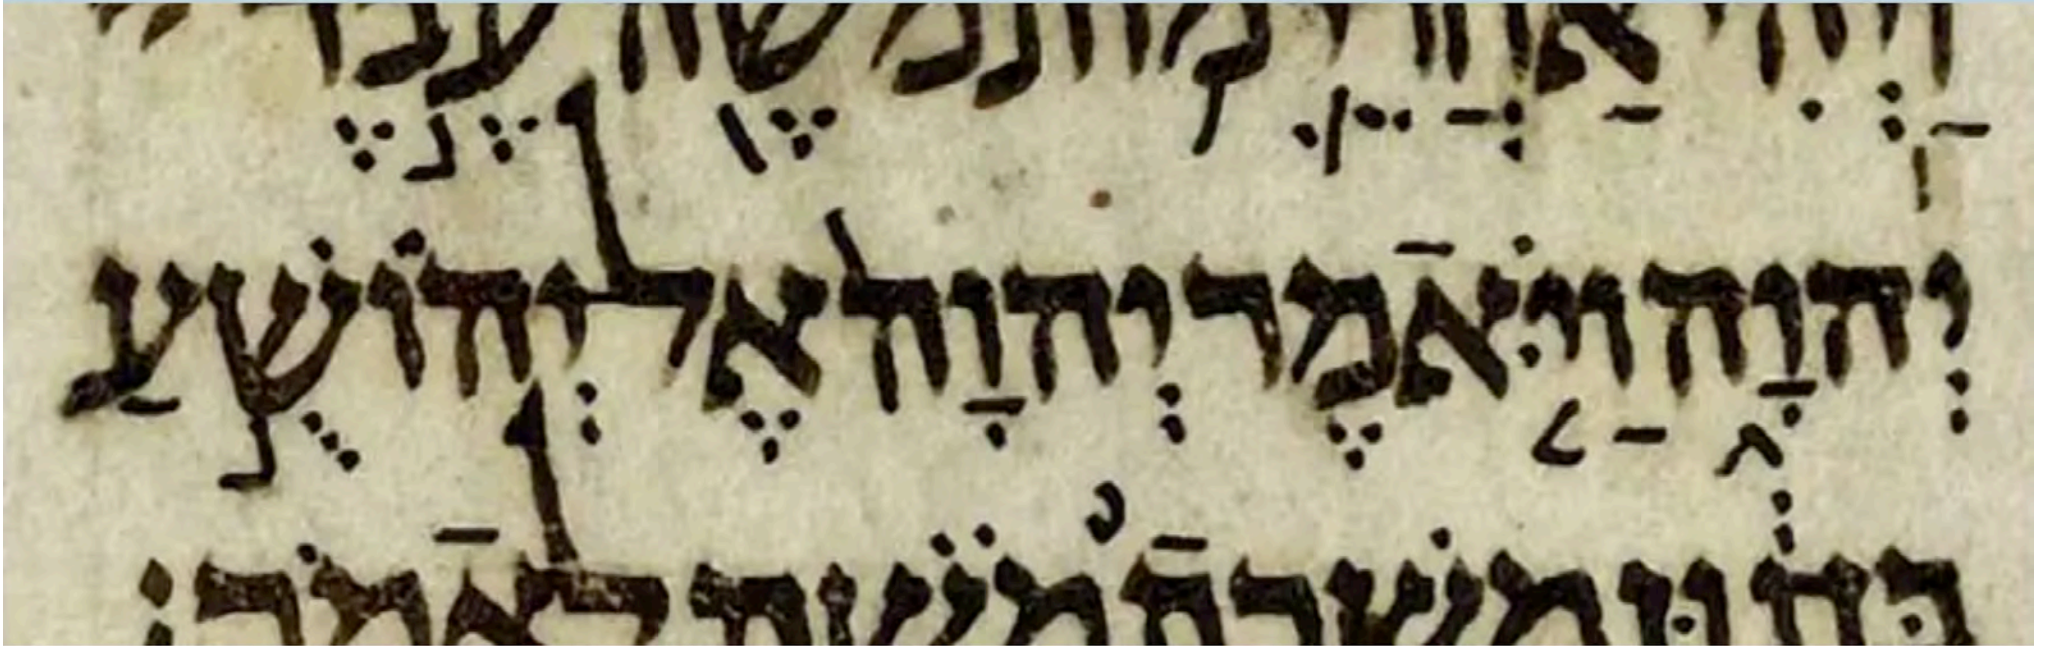 וַֽיְהִ֗י אַחֲרֵ֛י מ֥וֹת מֹשֶׁ֖ה עֶ֣בֶד
יְהוָ֑ה וַיֹּ֤אמֶר יְהוָה֙ אֶל יְהוֹשֻׁ֣עַ
בִּן נ֔וּן מְשָׁרֵ֥ת מֹשֶׁ֖ה לֵאמֹֽר׃